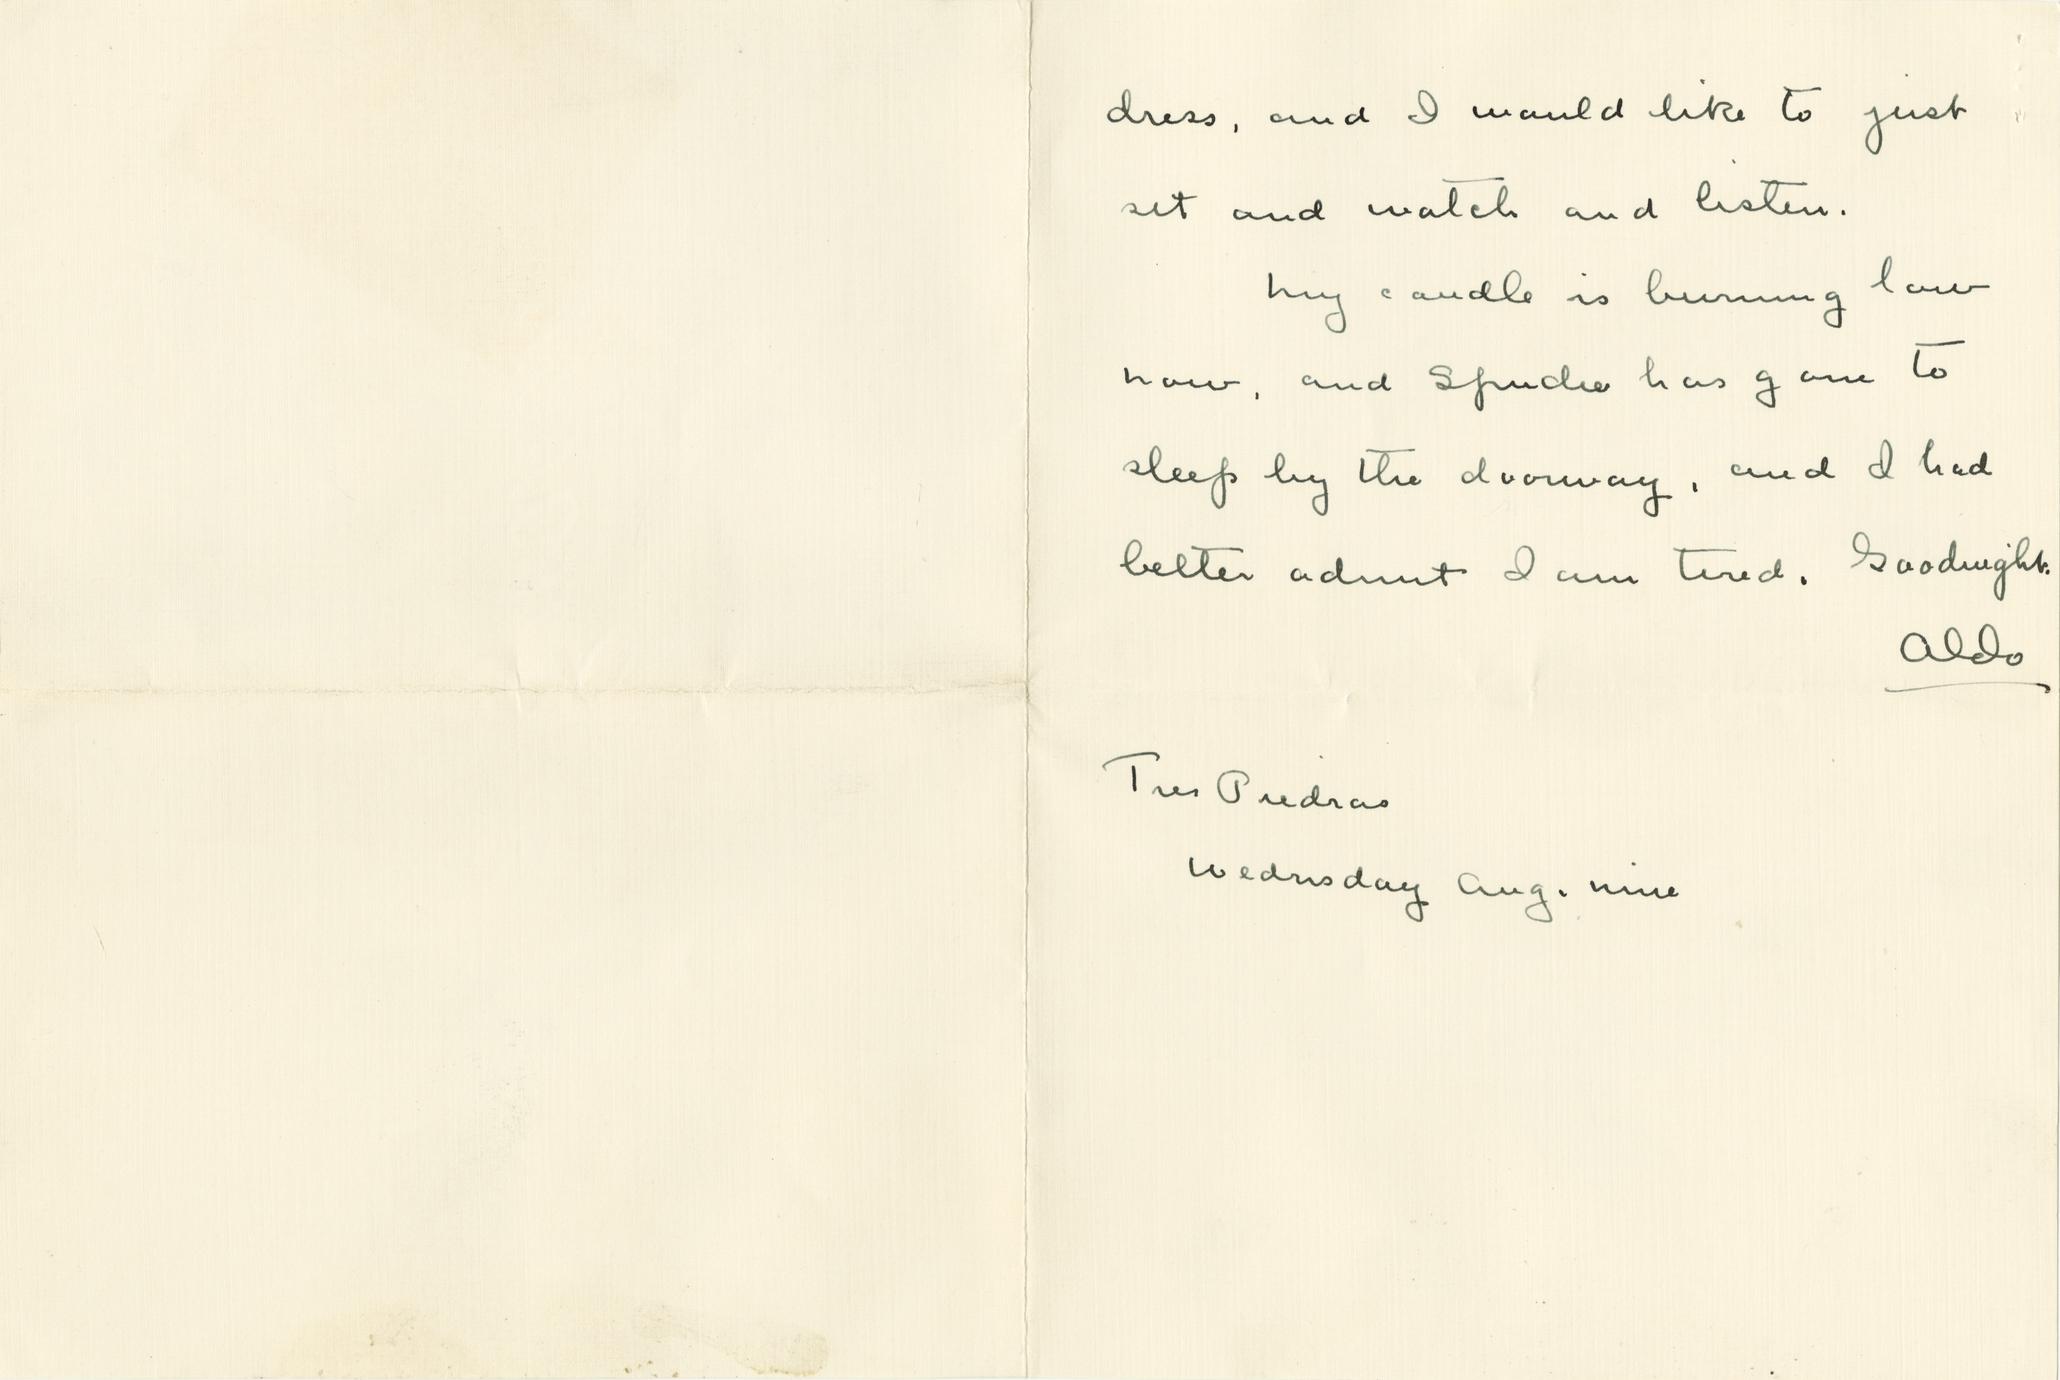 dress, and I would like to just
set and watch and listen.
My candle is burning low
now, and Spudie has gone to
sleep by the doorway, and I had
better admit I am tired. Goodnight.
Aldo
Tres Piedras
Wednesday Aug. nine